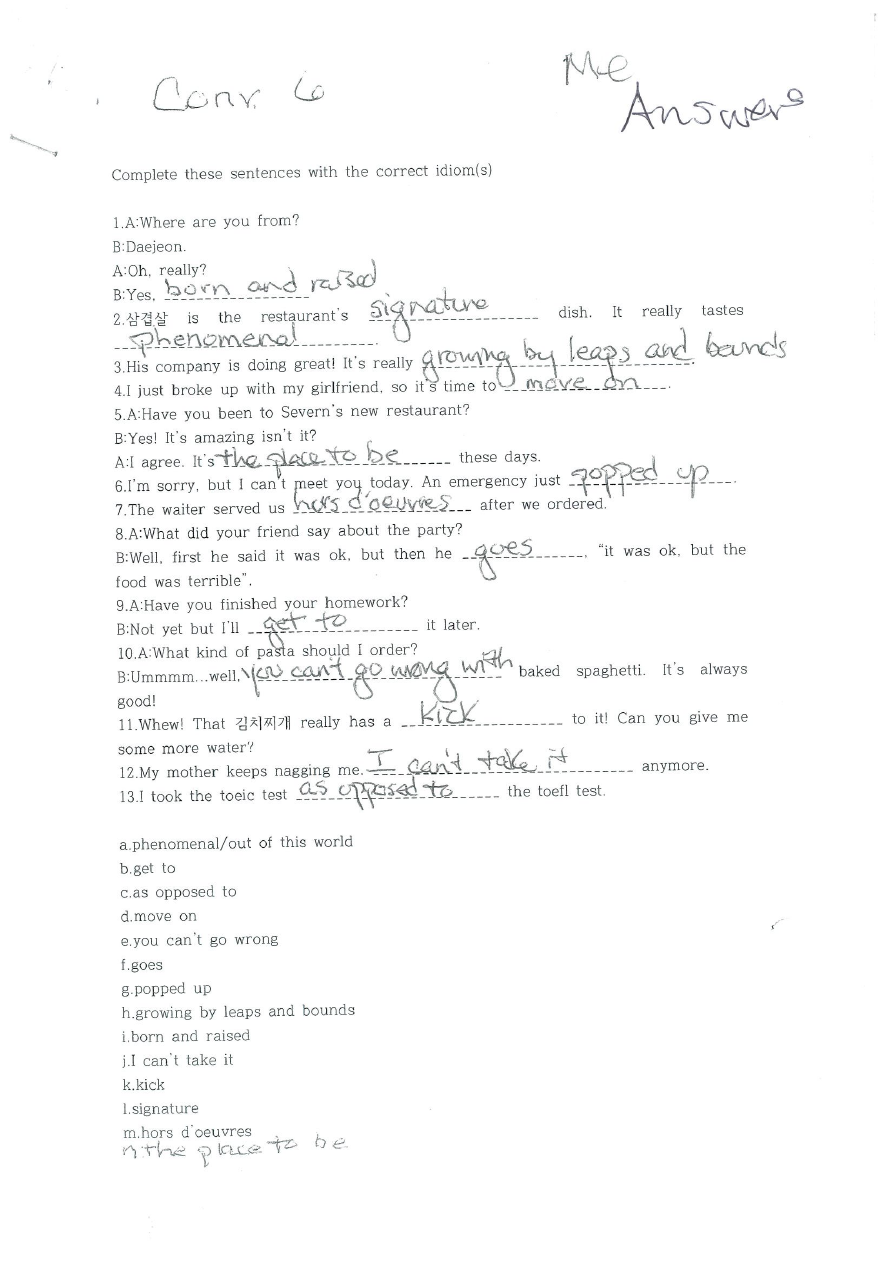 Conv. 6
Me
Answers
Complete these sentences with the correct idiom(s)
1.A:Where are you from?
B:Daejeon.
A:Oh, really?
B:Yes, born and raised
2.삼겹살 is the restaurant's signature dish. It really tastes
phenomenal.
3.His company is doing great! It's really growing by leaps and bounds.
4.I just broke up with my girlfriend, so it's time to move on.
5.A:Have you been to Severn's new restaurant?
B:Yes! It's amazing isn't it?
A:I agree. It's the place to be these days.
6.I'm sorry, but I can't meet you today. An emergency just popped up.
7.The waiter served us hors d'oeuvres after we ordered.
8.A:What did your friend say about the party?
B:Well, first he said it was ok, but then he goes, "it was ok, but the
food was terrible".
9.A:Have you finished your homework?
B:Not yet but I'll get to it later.
10.A:What kind of pasta should I order?
B:Ummmm...well, you can't go wrong with baked spaghetti. It's always
good!
11.Whew! That 김치찌개 really has a kick to it! Can you give me
some more water?
12.My mother keeps nagging me. I can't take it anymore.
13.I took the toeic test as opposed to the toefl test.
a.phenomenal/out of this world
b.get to
c.as opposed to
d.move on
e.you can't go wrong
f.goes
g.popped up
h.growing by leaps and bounds
i.born and raised
j.I can't take it
k.kick
l.signature
m.hors d'oeuvres
n the place to be